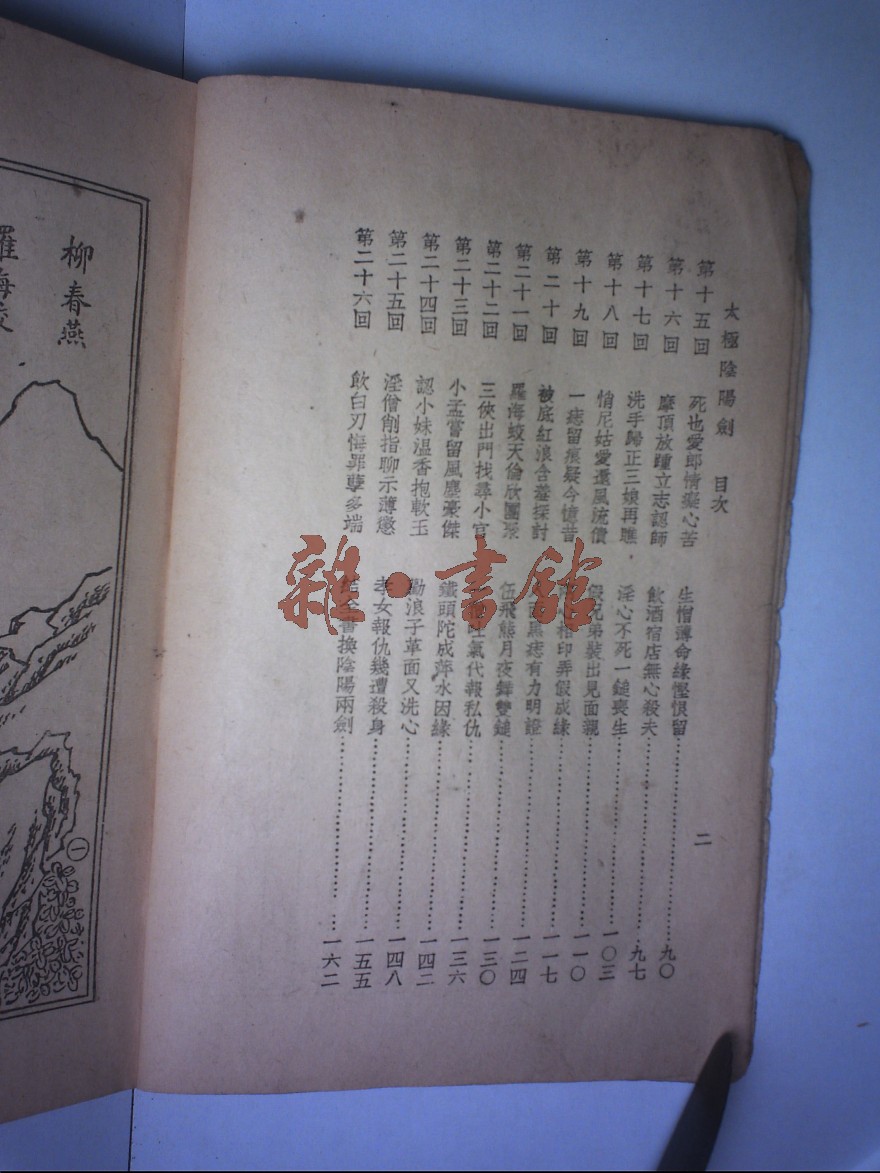 太極陰陽劍　目次
二
第十五回　死也愛郎情癡心苦　生憎薄命緣慳恨留⋯⋯九〇
第十六回　摩頂放踵立志認師　飲酒宿店無心殺夫⋯⋯九七
第十七回　洗手歸正三娘再醮　淫心不死一鎚喪生⋯⋯一〇三
第十八回　悄尼姑愛還風流債　假兄弟裝出見面親⋯⋯一一〇
第十九回　一痣留痕疑今憶昔　相印弄假成緣⋯⋯一一七
第二十回　被底紅浪含羞探討　面黑痣有力明證⋯⋯一二四
第二十一回　羅海蛟天倫欣團聚　伍飛熊月夜舞雙鎚⋯⋯一三〇
第二十二回　三俠出門找尋小官　吐氣代報私仇⋯⋯一三六
第二十三回　小孟嘗留風塵豪傑　鐵頭陀成萍水因緣⋯⋯一四二
第二十四回　認小妹溫香抱軟玉　勸浪子革面又洗心⋯⋯一四八
第二十五回　淫僧削指聊示薄懲　孝女報仇幾遭殺身⋯⋯一五五
第二十六回　飲白刃悔罪孽多端　書換陰陽兩劍⋯⋯一六二
柳春燕
羅海蛟
一
雜·書館